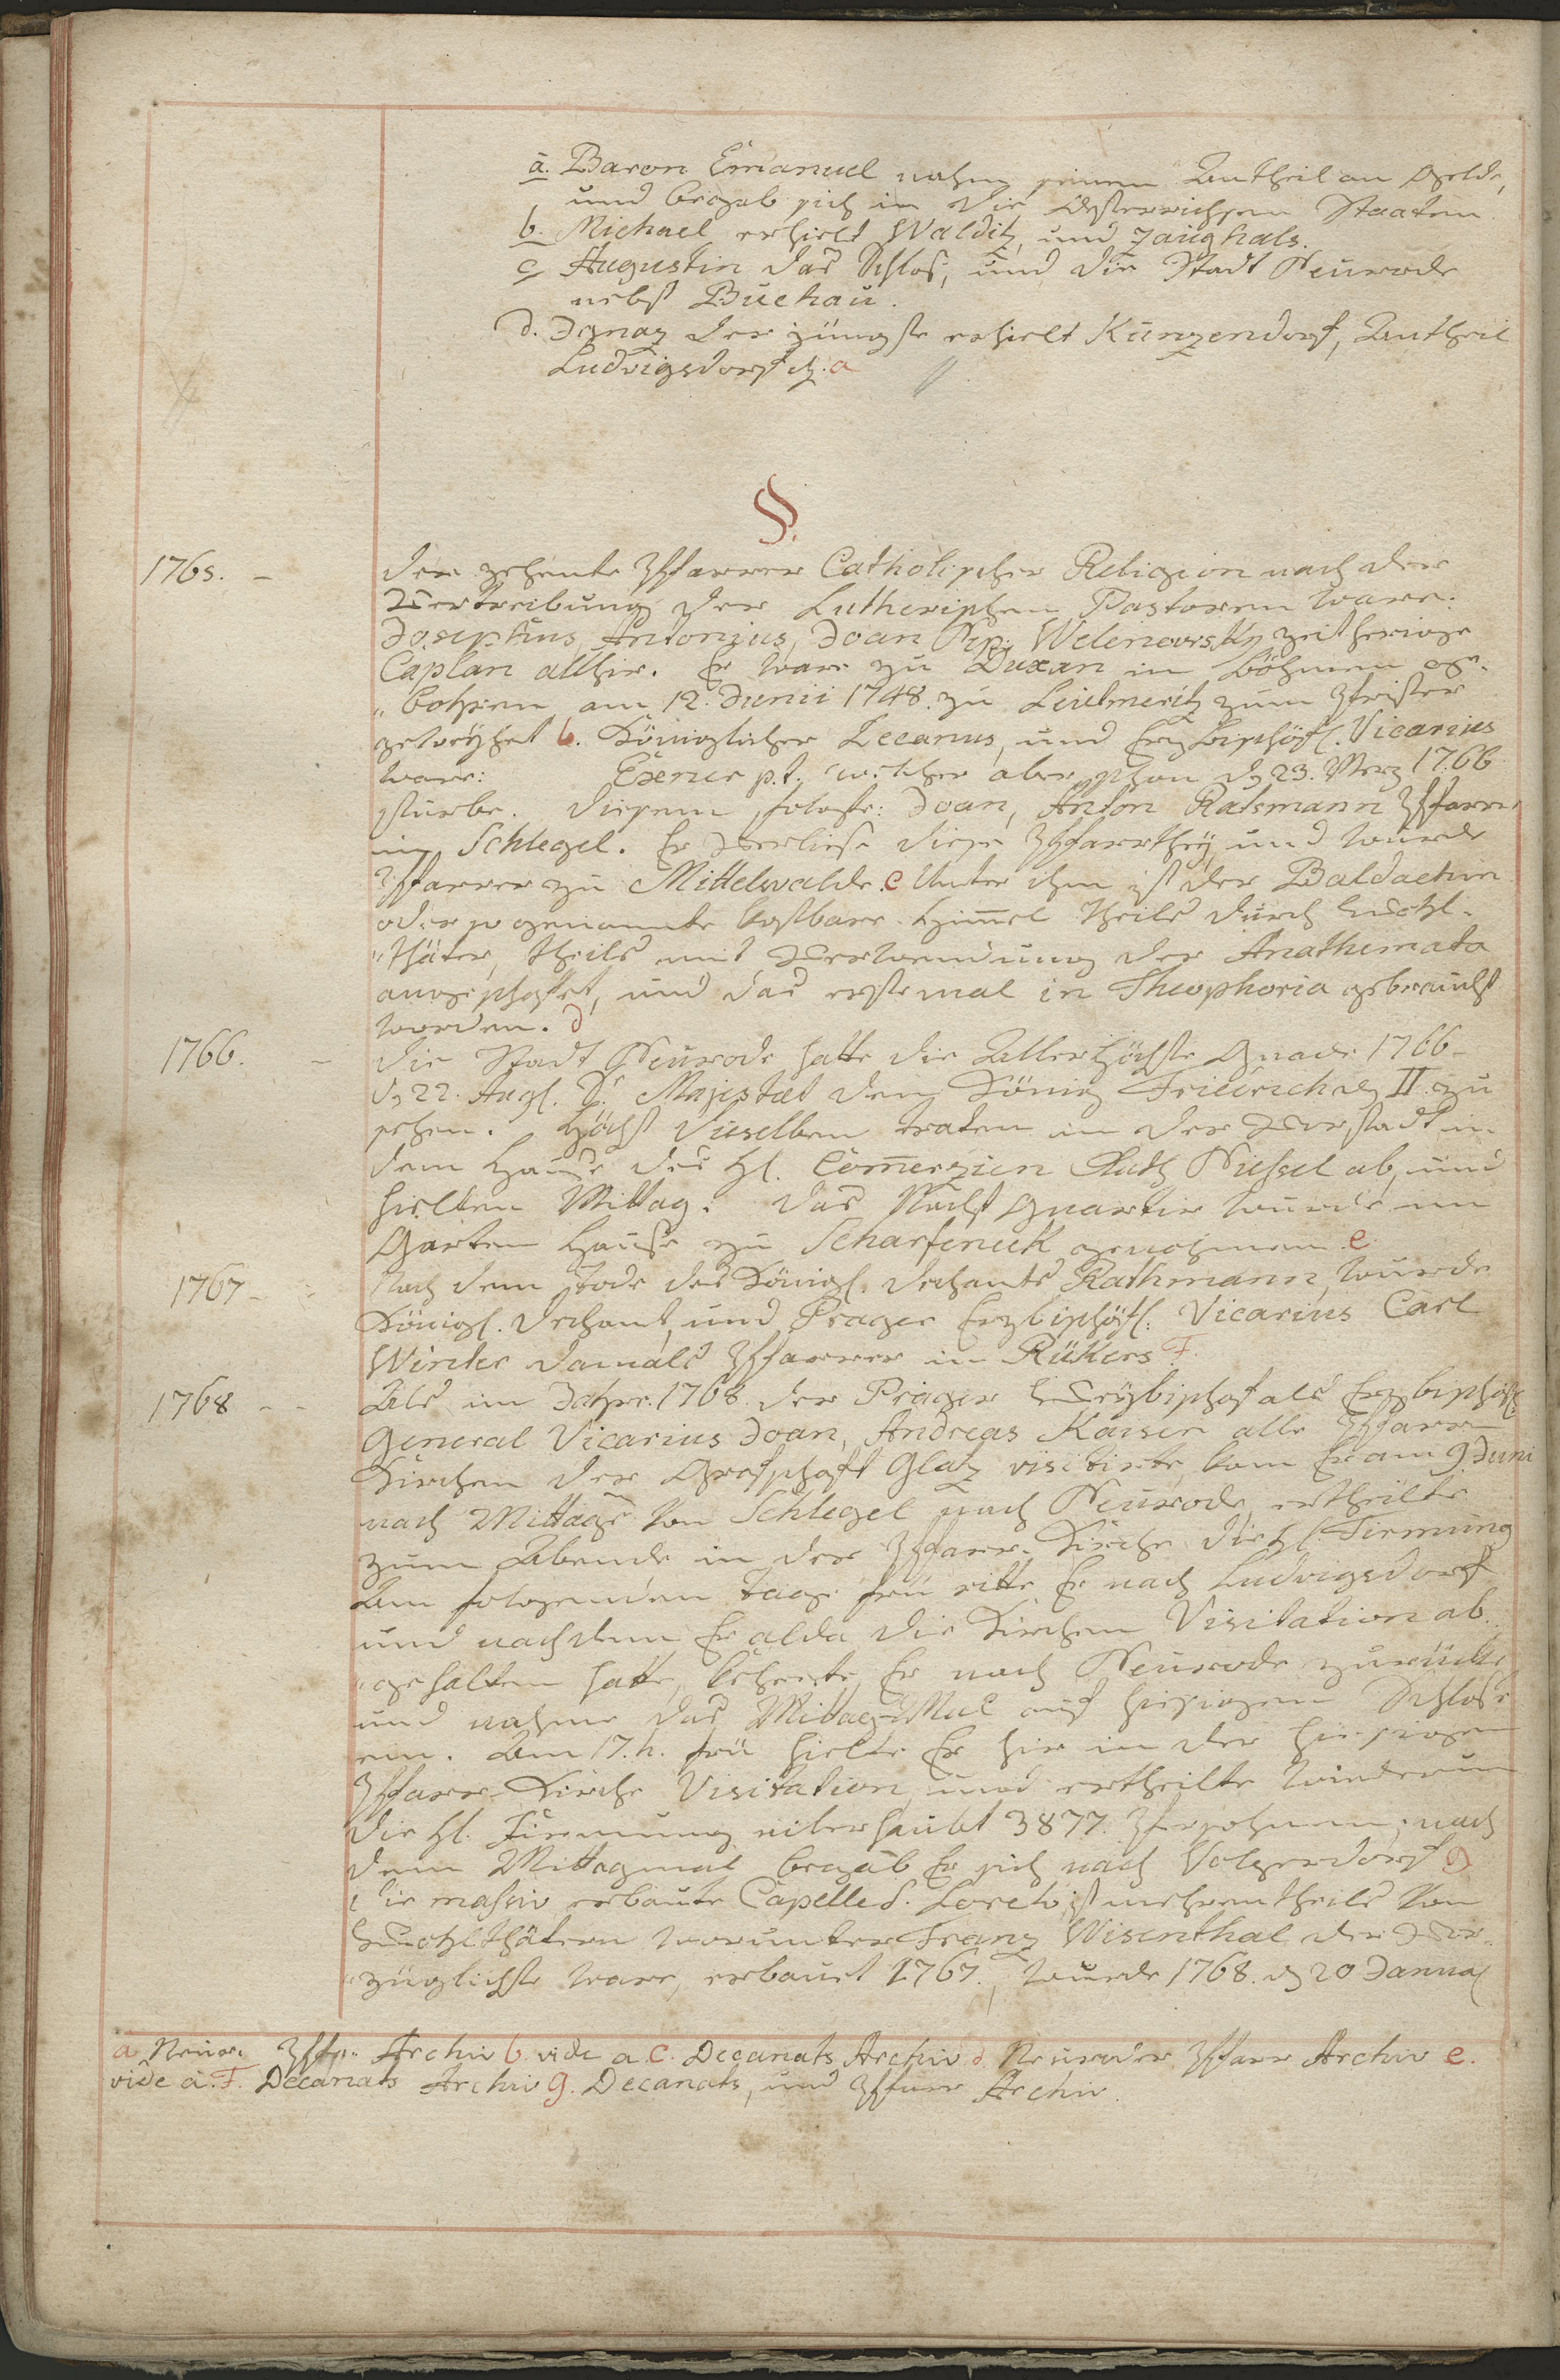 a. Baron Emanuel nahm seinen Antheil an Gelde,
und begab sich in die Österrichsen Staaten.
b. Michael erhielt Walditz, und Zaughals.
c Augustin das Schlos, und die Stadt Neurode
nebst Buchau.
d. Ignaz der jüngste erhielt Kunzendorf, Antheil
Ludwigsdorf etz. a
§.
1765. – der zehente Pfarrer Catholischer Religion nach der
Vertreibung der Lutherischen Pastoren ware:
Josephus, Antonius, Joan Nep: Welinowsky zeitheriger
Caplan allhir. Er ware zu Duxan in Böhmen ge-
"bohren am 12. Junii 1748. zu Leutmeritz zum Prister
geweÿhet b. Königlicher Decanus, und Erzbischöfl. Vicarius
ware: Exner p.t. welcher aber schon d 23. Merz 1766
sturbe. diesem folgte: Joan, Anton Ratsmann Pfarrer
in Schlegel. Er Verliese diese Pfarrtheÿ, und wurde
Pfarrer zu Mittelwalde. c Unter ihm ist der Baldachin
oder so genannte kostbare Himmel theils durch Wohl-
"thäter, theils mit Verwendung der Anathemata
angeschaffet, und das erstemal in Theophoria gebraucht
worden. d
1766. – die Stadt Neurode hatte die Allerhöchste Gnade 1766
d 22. Augl. Sr Majestæt den König Friedrich den II zu
sehen. Höchst dieselben traten in der Vorstadt in
dem Hause des H. Com̄erzien Rath Niesel ab, und
hielten Mittag: das Nacht Quartir wurde im
Garten Hause zu Scharfeneck genohmen. e
1767 – Nach dem Tode des Königl. dechants Rathmann, wurde
Königl. dechant, und Prager Erzbischöfl. Vicarius Carl
Winter damals Pfarrer in Rükers F.
1768 – – Als im Jahre 1768. der Prager Weÿbischof als Erzbischöfl.
General Vicarius Joan, Andreas Kaiser alle Pfarr
Kirchen der Grafschaft Glatz visitirte, kam Er am 9 Juni
nach Mittage von Schlegel nach Neurode, ertheilte
zum Abende in der Pfarr-Kirche die hl. Firmung
Am folgenden Tage frü ritte Er nach Ludwigsdorf
und nachdem Er alda die Kirchen Visitation ab
"gehalten hatte, kehrete Er nach Neurode zurücke
und nahme das Mittag-Mal auf hiesigem Schlose
ein. Am 17. h. frü hielte Er hir in der hiesigen
Pfarr-Kirche Visitation, und ertheilte widerum
die hl. Firmung uiberhaubt 3877. Persohnen, nach
dem Mittagmal begab Er sich nach Volperdorf g
die massiv erbaute Capelle S. Loreto ist mehrentheils von
Wohlthätern worunter Franz Wisenthal der Vor-
"züglichste ware, erbauet 1767., wurde 1768. d 20 Janua
a Neuro. Pfr. Archiv b. vide a c. Decanats Archiv d. Neuroder Pfarr Archiv e.
vide a. F. Decanats Archiv g. Decanats, und Pfarr Archiv.